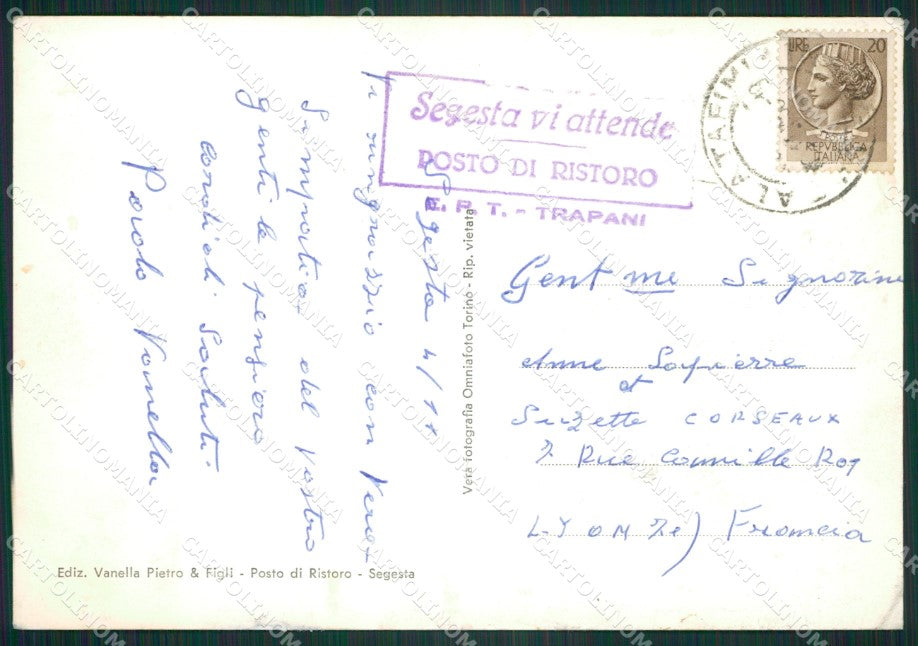 Segesta vi attende
POSTO DI RISTORO
E. P. T. - TRAPANI
LIRE 20
REPVBBLICA
ITALIANA
CALATAFIMI
Segesta 4/11
Vi ringrazio con vera
Simpatia del Vostro
gentile pensiero
Cordiali Saluti.
Paolo Vanella
Gent me Signorine
Anne Lapierre
et
Suzette CORSEAUX
7 Rue Camille Roy
LYON 7e) Francia
Vera fotografia Omniafoto Torino - Rip. vietata
Ediz. Vanella Pietro & Figli - Posto di Ristoro - Segesta
CARTOLINOMANIA